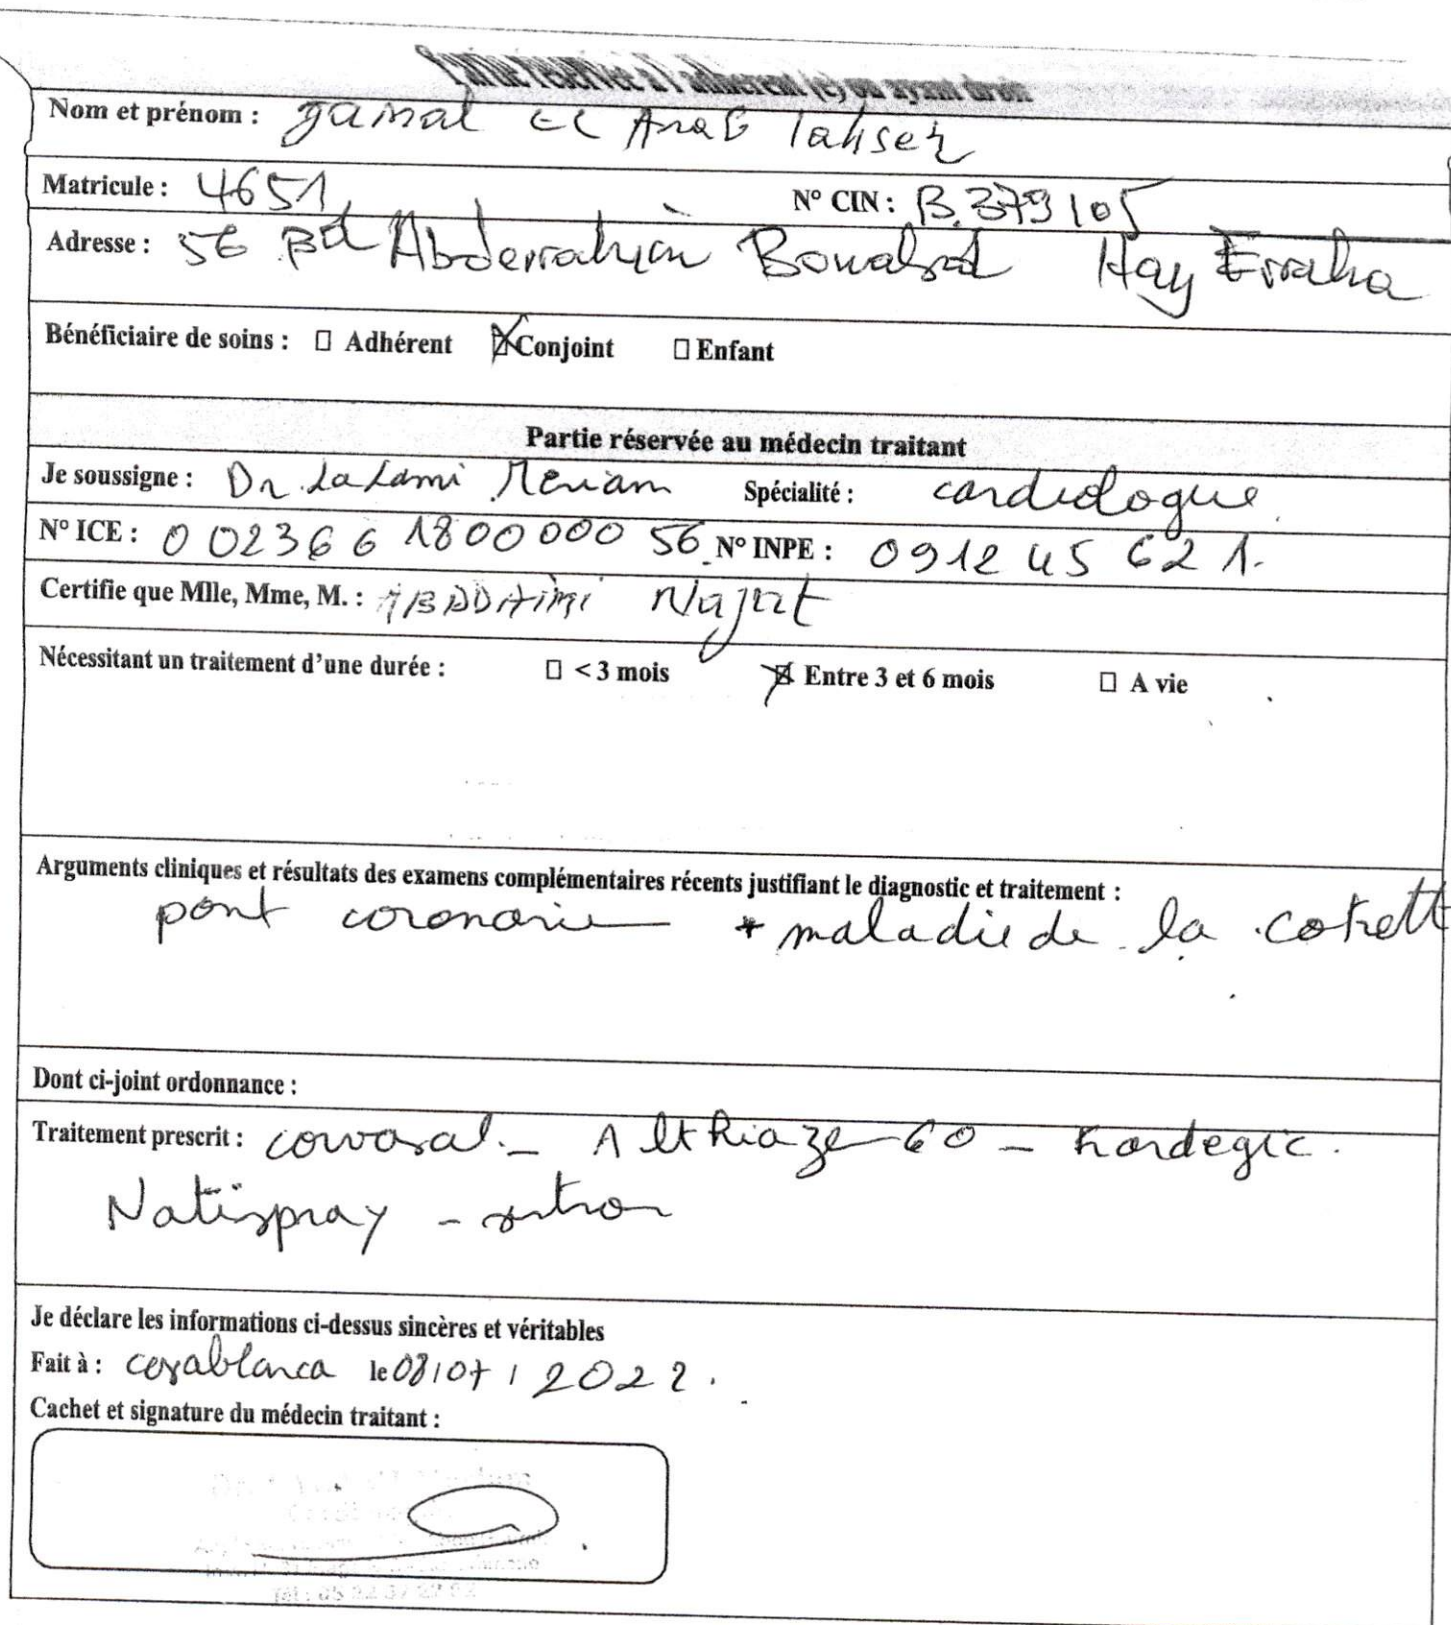 Partie réservée à l'adhérent (e) ou ayant droit
Nom et prénom : Jamal EL Arab Tahsen
Matricule : 4651 N° CIN : B.379105
Adresse : 56 Bd Abderrahim Bouabid Hay Erraha
Bénéficiaire de soins : ☐ Adhérent ☒ Conjoint ☐ Enfant
Partie réservée au médecin traitant
Je soussigne : Dr. Lalami Meriam Spécialité : cardiologue
N° ICE : 002366180000056 N° INPE : 091245621.
Certifie que Mlle, Mme, M. : Najat
Nécessitant un traitement d'une durée : ☐ < 3 mois ☒ Entre 3 et 6 mois ☐ A vie
Arguments cliniques et résultats des examens complémentaires récents justifiant le diagnostic et traitement :
pont coronarie + maladie de la
Dont ci-joint ordonnance :
Traitement prescrit : corvasal - Althiaze 60 - Kardegic.
Natispray -
Je déclare les informations ci-dessus sincères et véritables
Fait à : casablanca le 08/07/2022.
Cachet et signature du médecin traitant :